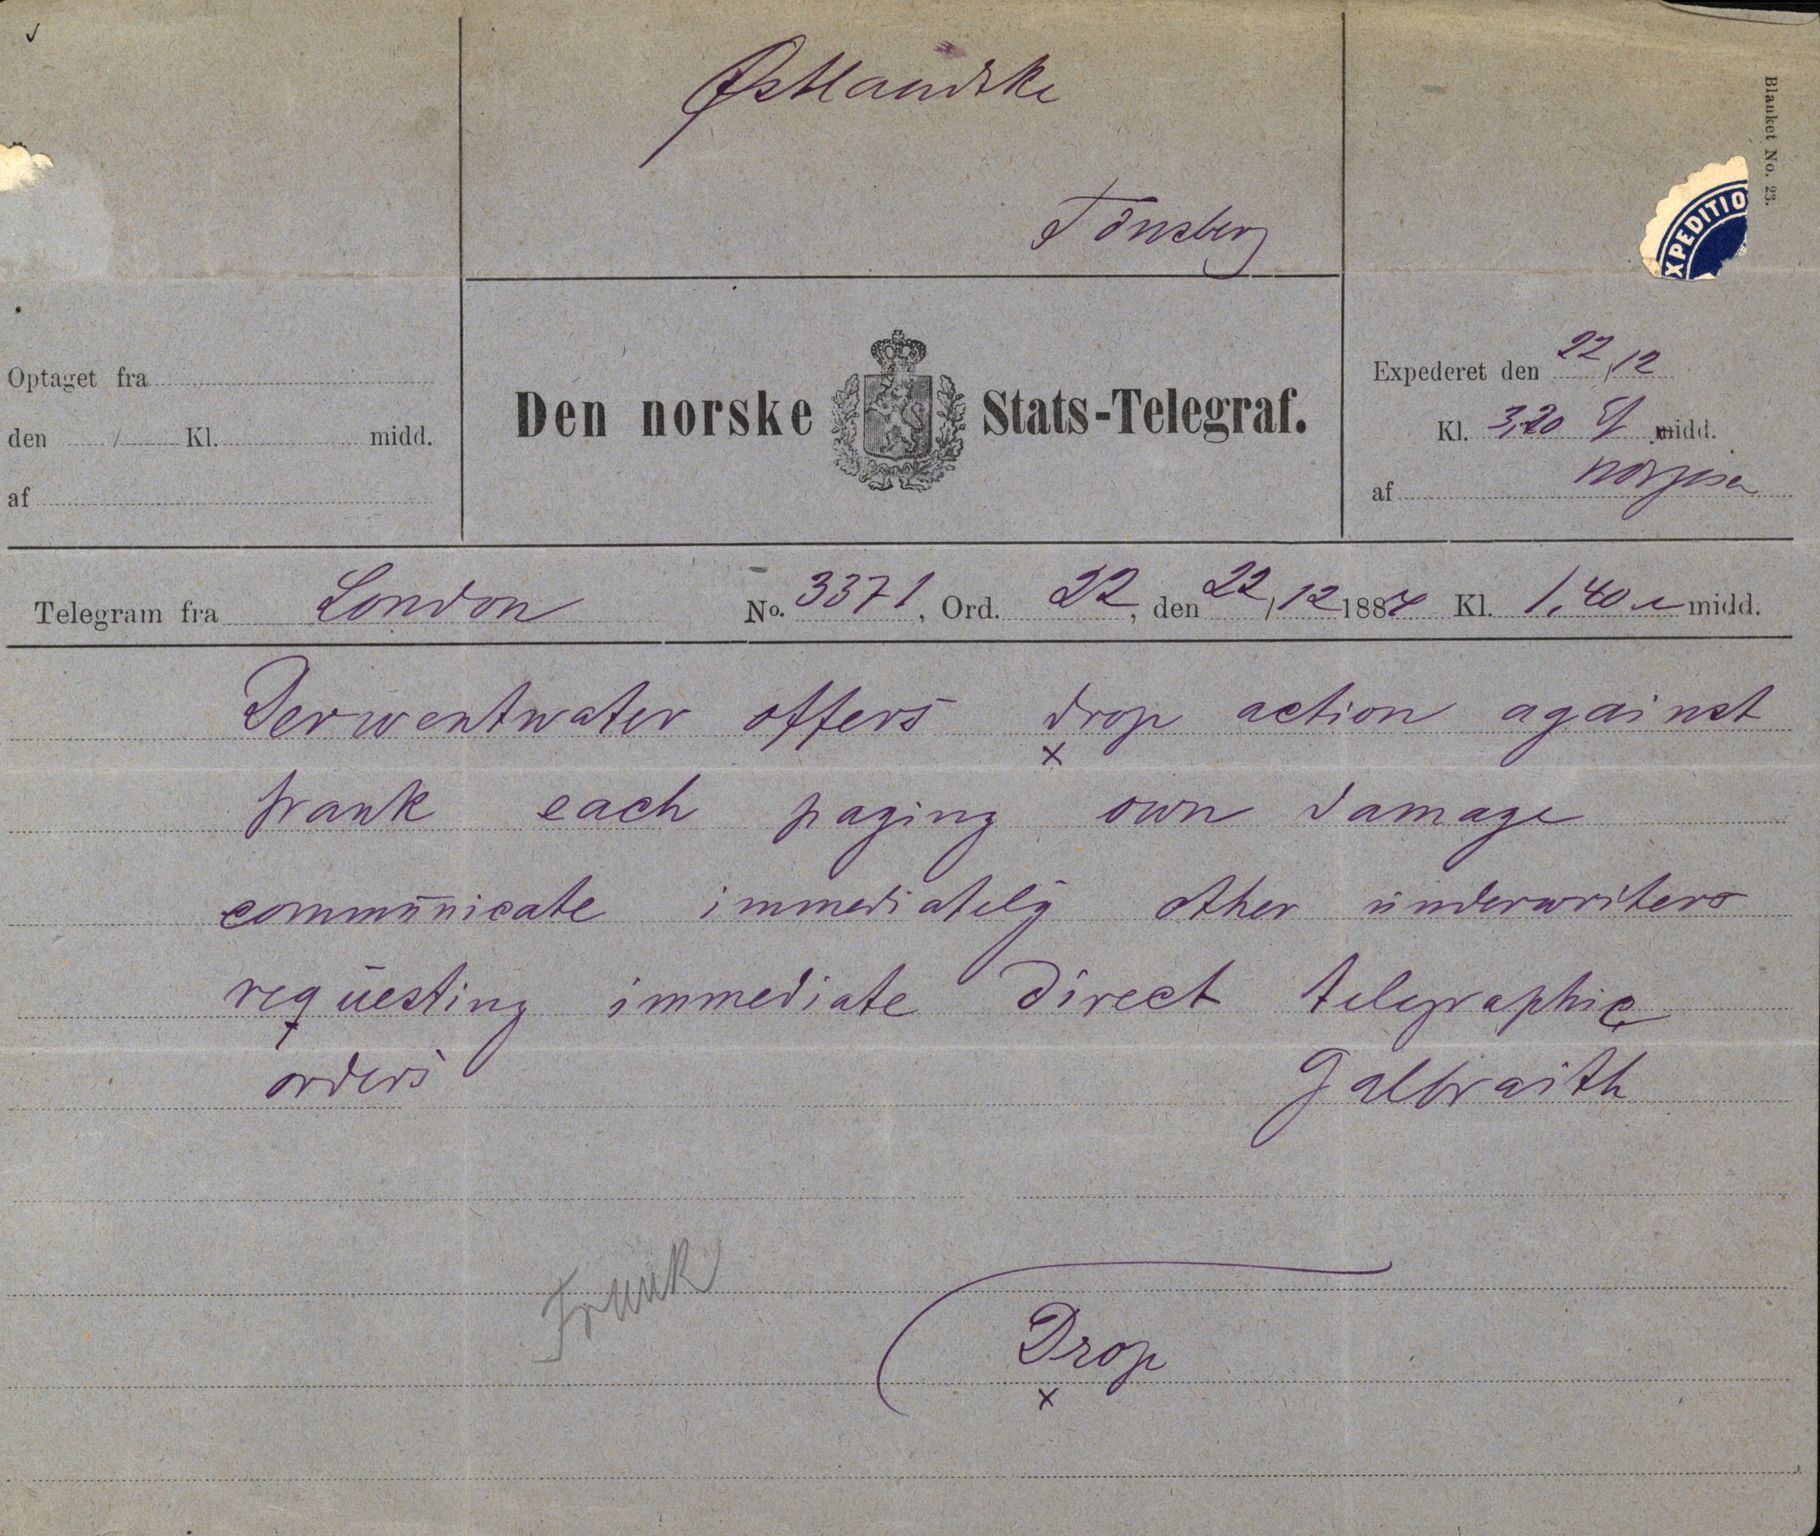 Østlandske
Tönsberg
Blanket No. 23.
XPEDITIO
Optaget fra
den / Kl. midd.
af
Den norske Stats-Telegraf.
Expederet den 22/12
Kl. 3,20 Ef midd.
af
Telegram fra London No. 3371, Ord. 22, den 22/12 1887 Kl. 1,40 midd.
Derwentwater offers drop action against
x
frank each paying own damage
communicate immediately other underwriters
requesting immediate direct telegraphic
orders Galbraith
Frank
Drop
x